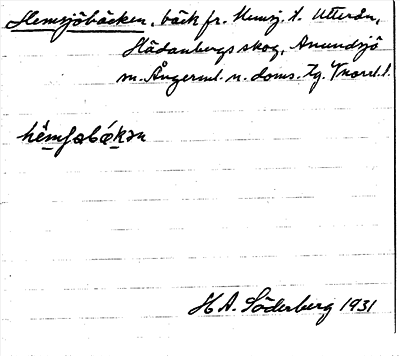 Hemsjöbäcken, bäck fr. Hemsj. t. Utterån,
Hädanbergs skog, Anundsjö
m. Ångerml. n. doms. Tg. Vnorrl. l.
hêmſəbǽkən
H A. Söderberg 1931